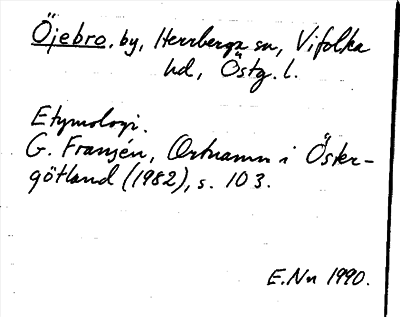 Öjebro, by, Herrberga sn, Vifolka
hd, Östg. l.
Etymologi.
G. Franzén, Ortnamn i Öster-
götland (1982), s. 103.
E.Nn 1990.